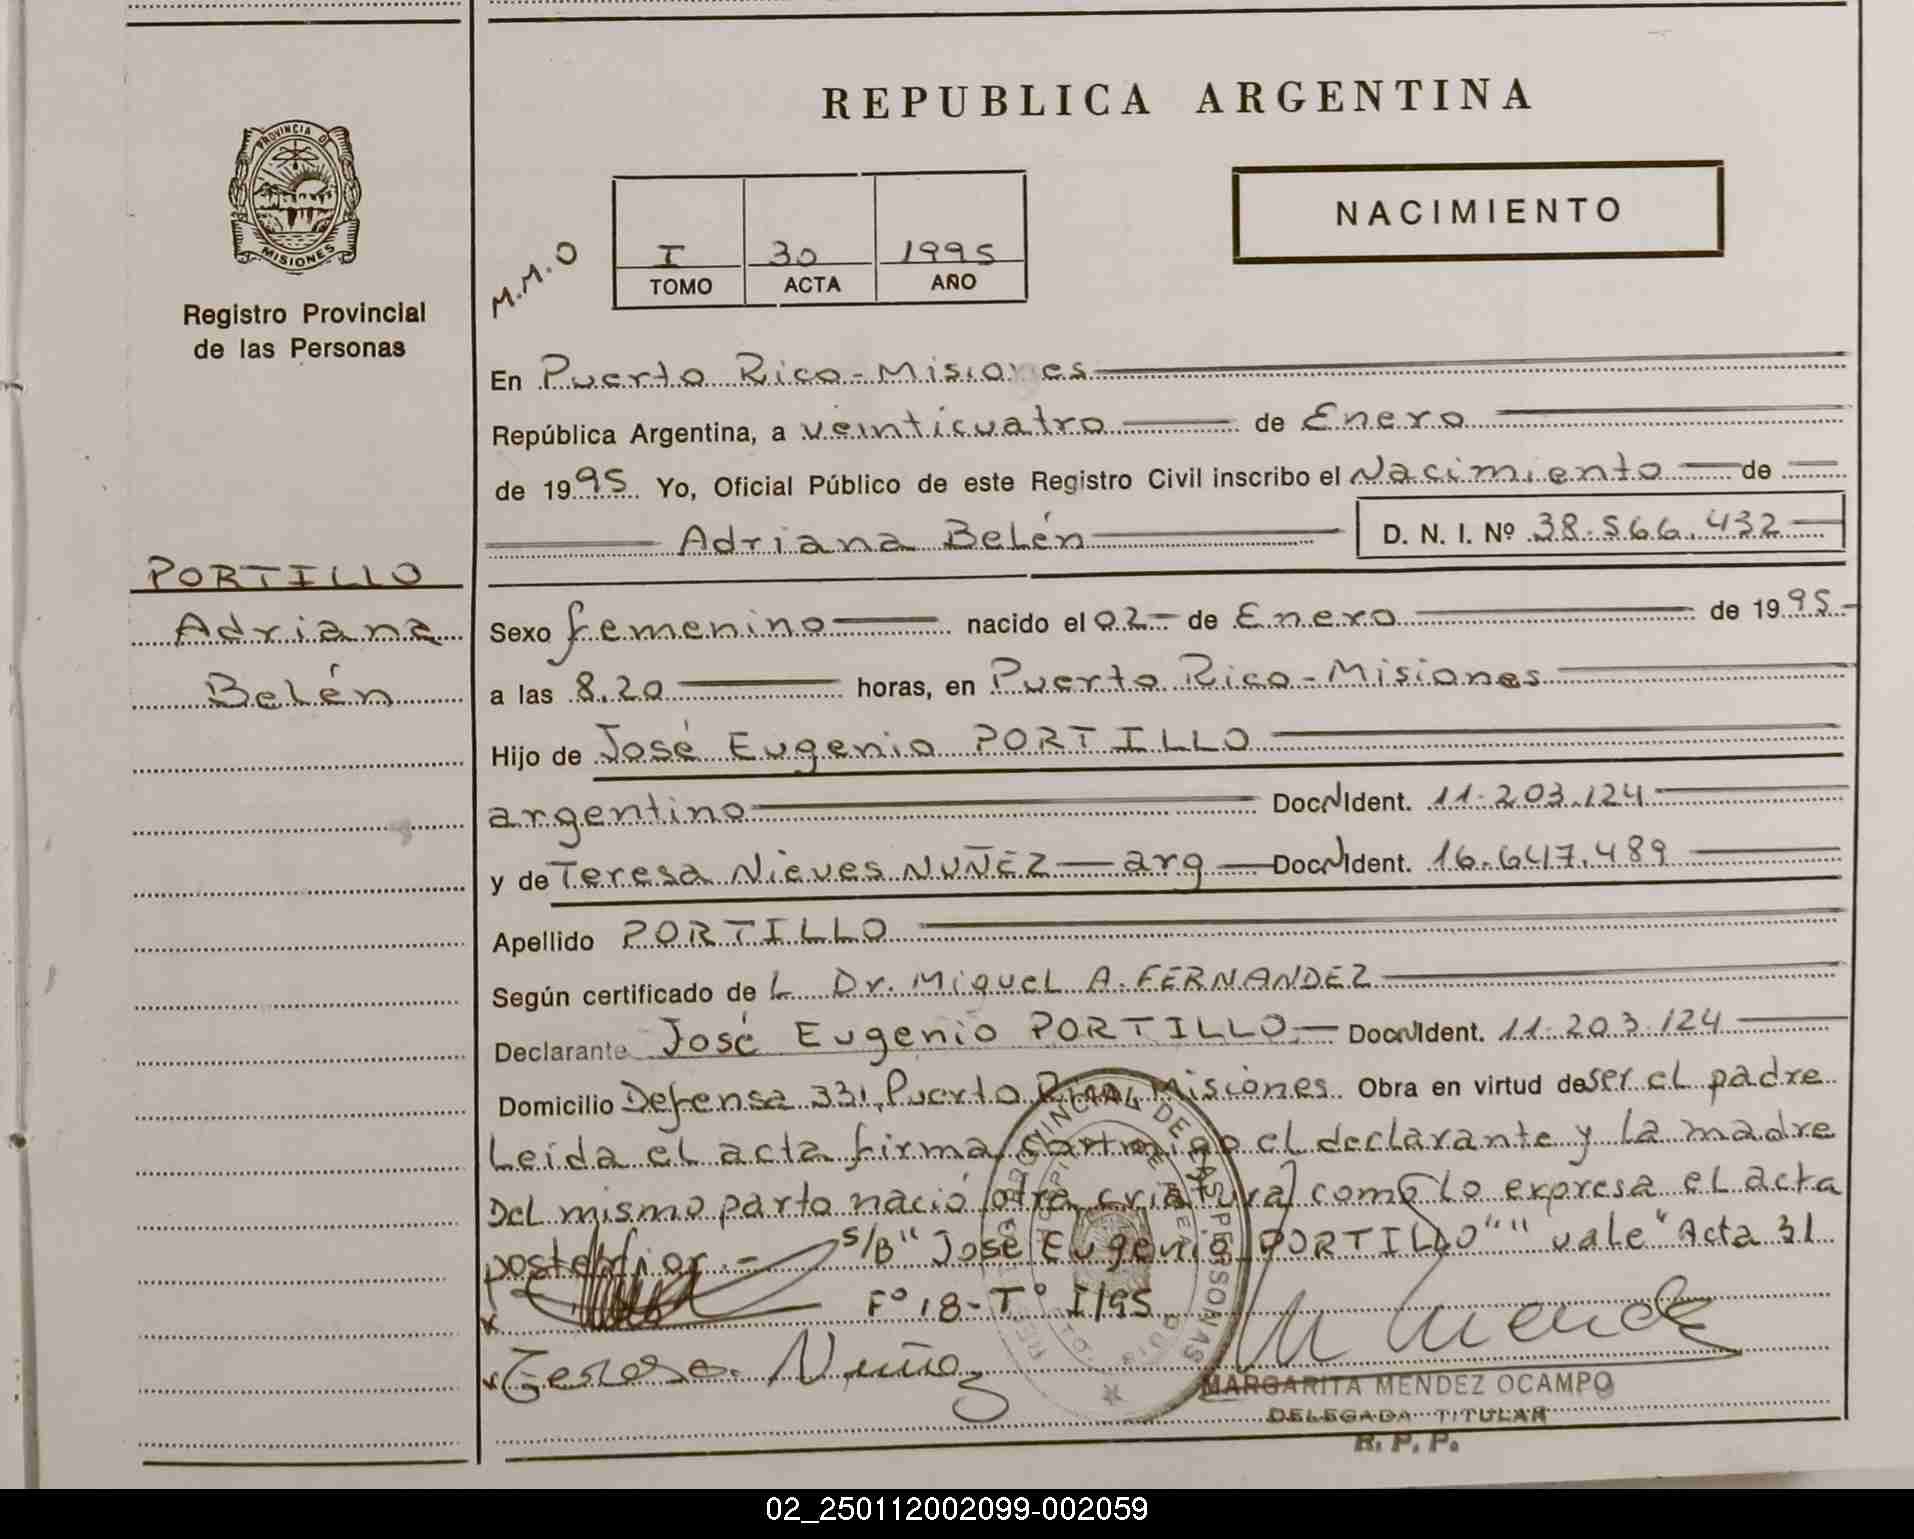 REPUBLICA ARGENTINA
PROVINCIA D
MISIONES
Registro Provincial
de las Personas
M.M.O
I 30 1995
TOMO ACTA AÑO
NACIMIENTO
En Puerto Rico-Misiones
República Argentina, a veinticuatro de Enero
de 1995 Yo, Oficial Público de este Registro Civil inscribo el Nacimiento de
Adriana Belén D. N. I. Nº 38.566.432
PORTILLO
Adriana
Belén
Sexo femenino nacido el 02 de Enero de 1995
a las 8.20 horas, en Puerto Rico-Misiones
Hijo de José Eugenio PORTILLO
argentino Doc.N.Ident. 11.203.124
y de Teresa Nieves NUÑEZ arg Doc.N.Ident. 16.647.489
Apellido PORTILLO
Según certificado de L Dr. Miguel A. FERNANDEZ
Declarante José Eugenio PORTILLO.- Doc.N.Ident. 11.203.124
Domicilio Defensa 331, Puerto Rico, Misiones. Obra en virtud de ser el padre
Leída el acta firma conmigo el declarante y la madre
Del mismo parto nació otra criatura como lo expresa el acta
posterior.- S/B" José Eugenio PORTILLO"" vale" Acta 31
Fº 18-Tº I/95
x
x Teresa Nuñez
PROVINCIAL DE LAS PERSONAS
M Mendez
MARGARITA MENDEZ OCAMPO
DELEGADA TITULAR
R. P. P.
02_250112002099-002059